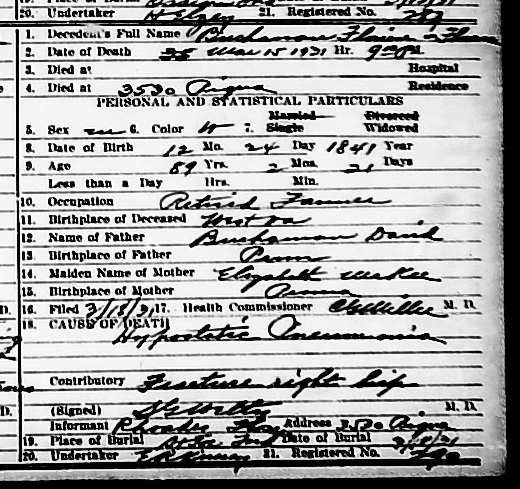 20. Undertaker H Elzey 21. Registered No.
1. Decedent's Full Name Buchanan
2. Date of Death Mar 15 1931 Hr. 9 PM
3. Died at Hospital
4. Died at 3530 Piqua Residence
PERSONAL AND STATISTICAL PARTICULARS
Married Divorced
5. Sex m 6. Color W 7. Single Widowed
8. Date of Birth 12 Mo. 24 Day 1841 Year
9. Age 89 Yrs. 2 Mos. 21 Days
Less than a Day Hrs. Min.
10. Occupation Retired Farmer
11. Birthplace of Deceased West Va
12. Name of Father Buchanan David
13. Birthplace of Father Penn
14. Maiden Name of Mother Elizabeth McKee
15. Birthplace of Mother Penna
16. Filed 3/18/31 17. Health Commissioner M. D.
18. CAUSE OF DEATH
Hypostatic Pneumonia
Contributory Fracture right hip
(Signed) M. D.
Informant Rhoades Address 3530 Piqua
19. Place of Burial Date of Burial 3/18/31
20. Undertaker 21. Registered No.